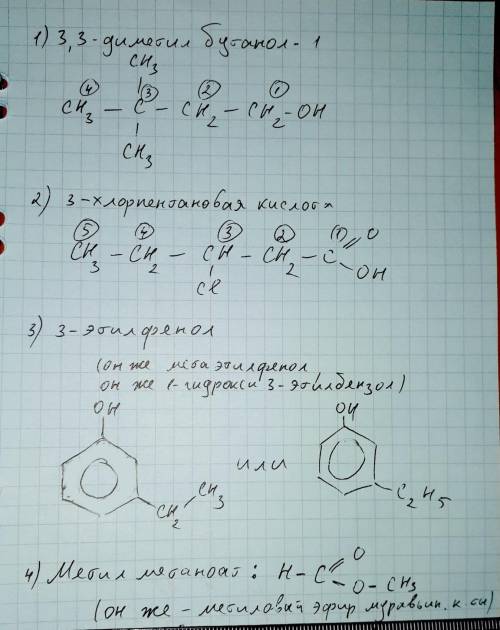 1) 3,3-диметил бутанол-1
CH3
④ ③ ② ①
CH3 - C - CH2 - CH2 - OH
CH3
2) 3-хлорпентановая кислота
⑤ ④ ③ ② ① O
CH3 - CH2 - CH - CH2 - C
OH
Cl
3) 3-этилфенол
(он же метаэтилфенол,
он же 1-гидрокси 3-этилбензол)
OH OH
или
CH3
CH2 C2H5
O
4) Метил метаноат: H - C
O - CH3
(он же - метиловый эфир муравьин. к-ты)